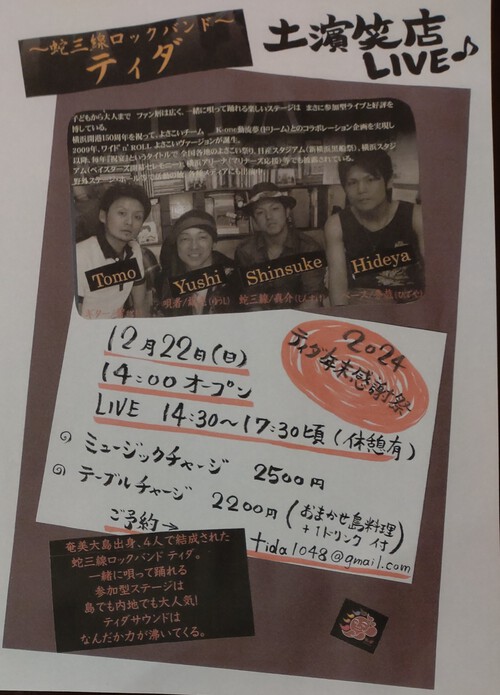 ～蛇三線ロックバンド～
ティダ
土濱笑店
LIVE♪
子どもから大人まで ファン層は広く、一緒に唄って踊れる楽しいステージは まさに参加型ライブと好評を
博している。
横浜開港150周年を祝って、よさこいチーム
とのコラボレーション企画を実現し
2009年、ワイド n' ROLL よさこいヴァージョンが誕生。
以降、毎年「祝宴」というタイトルで 全国各地のよさこい祭り、日産スタジアム
横浜スタジ
アム
横浜アリーナ
等でも披露されている。
Tomo
Yushi
Shinsuke
Hideya
12月22日(日)
14:00 オープン
LIVE 14:30～17:30頃(休憩有)
2024
ティダ年末感謝祭
ミュージックチャージ 2500円
テーブルチャージ 2200円(おまかせ島料理
+1ドリンク付)
ご予約→
tida1048@gmail.com
奄美大島出身、4人で結成された
蛇三線ロックバンド ティダ。
一緒に唄って踊れる
参加型ステージは
島でも内地でも大人気!
ティダサウンドは
なんだか力が沸いてくる。